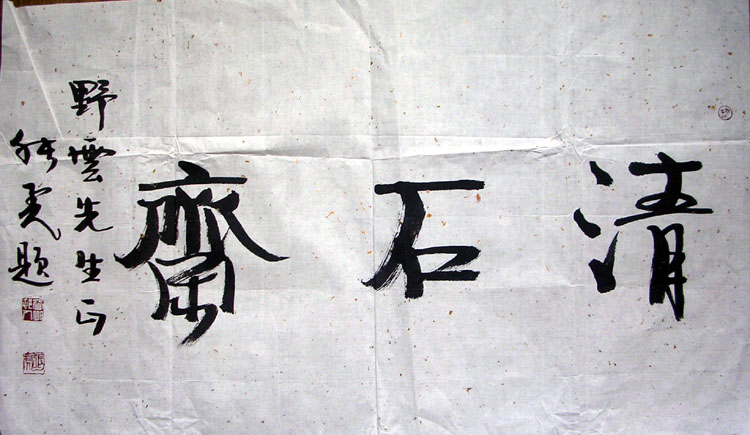 清石齋
野雲先生正
題